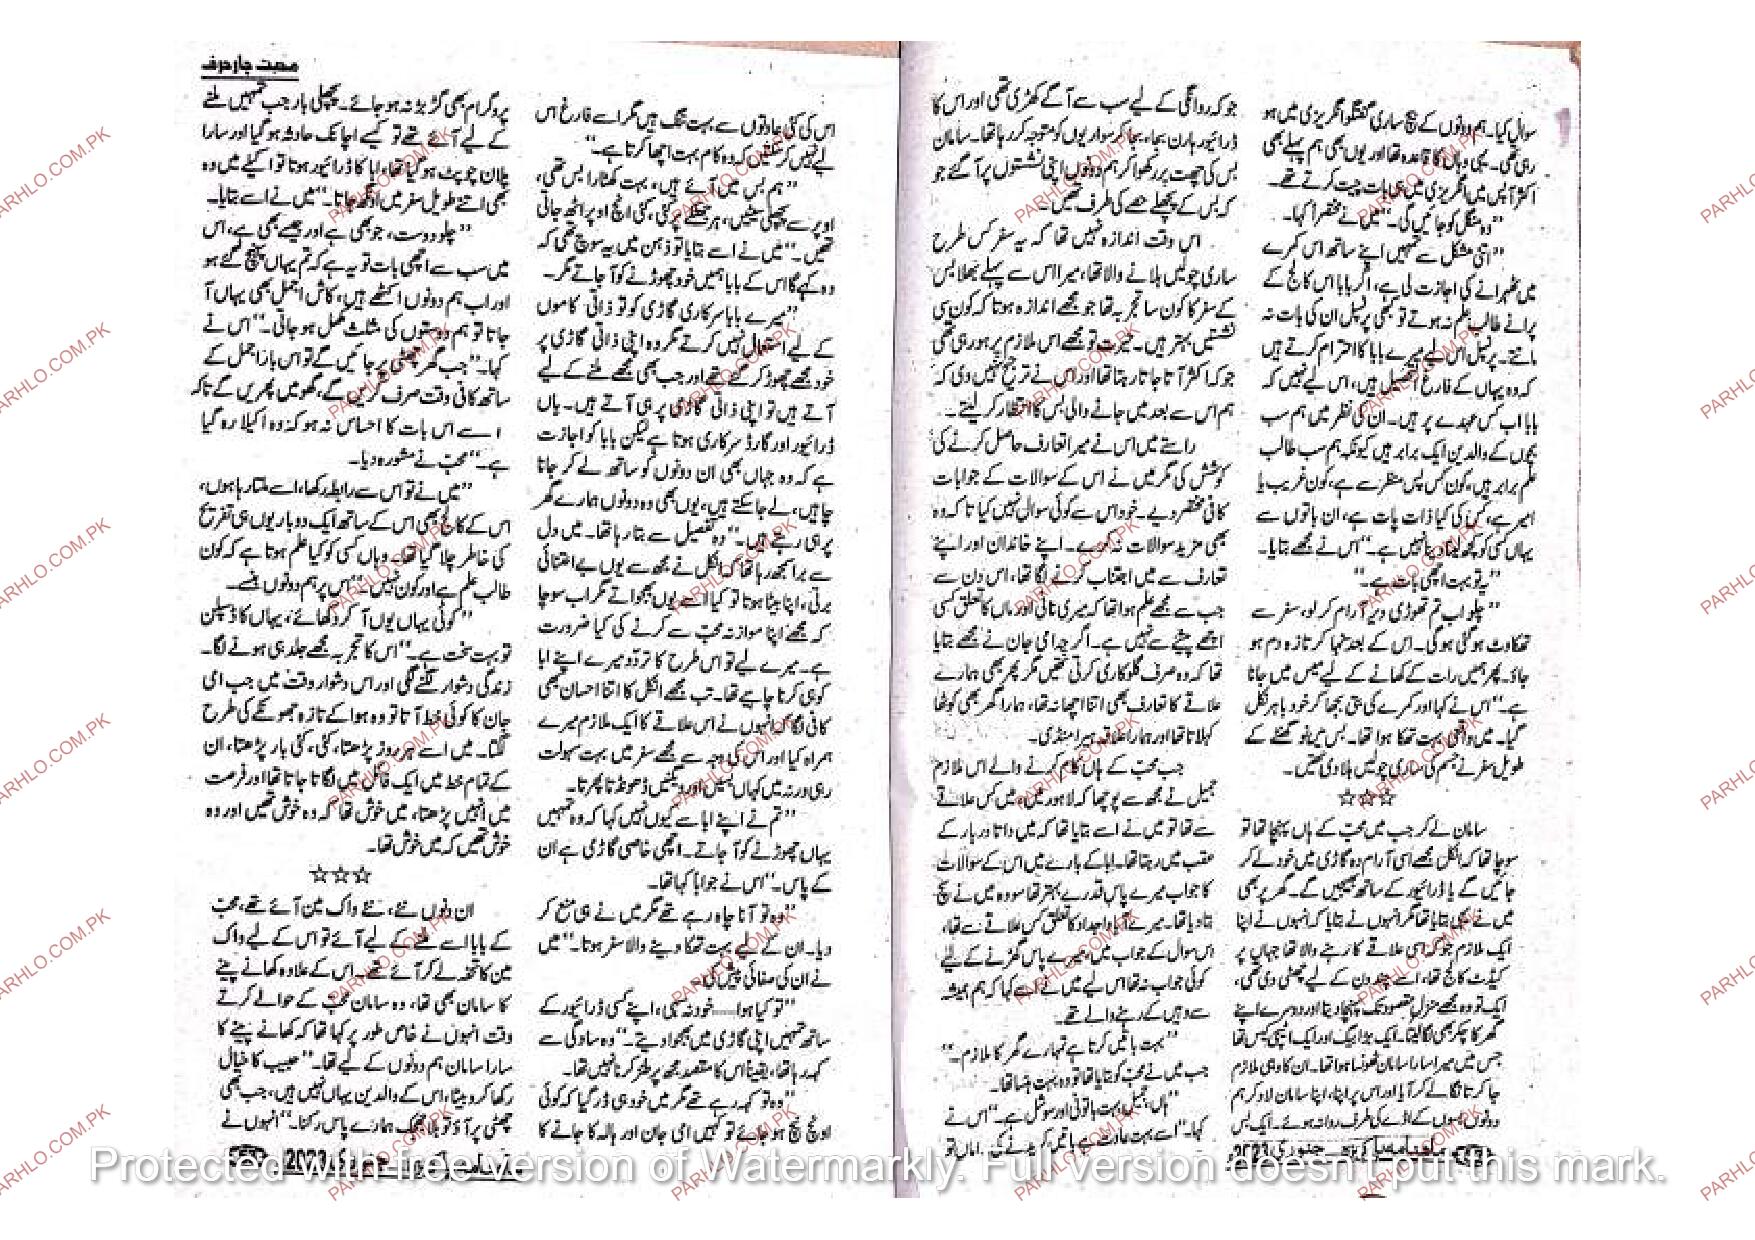 سوال کیا۔ ہم دونوں کے بیچ ساری گفتگو انگریزی میں ہو
رہی تھی۔ یہی وہاں کا قاعدہ تھا اور یوں بھی ہم پہلے بھی
اکثر آپس میں انگریزی میں ہی بات چیت کرتے تھے۔
"وہ منگل کو جائیں گی۔" میں نے مختصراً کہا۔
"اتنی مشکل سے تمہیں اپنے ساتھ اس کمرے
میں ٹھہرانے کی اجازت لی ہے، اگر بابا اس کالج کے
پرانے طالب علم نہ ہوتے تو کبھی پرنسپل ان کی بات نہ
مانتے۔ پرنسپل اس لیے میرے بابا کا احترام کرتے ہیں
کہ وہ یہاں کے فارغ التحصیل ہیں، اس لیے نہیں کہ
بابا اب کس عہدے پر ہیں۔ ان کی نظر میں ہم سب
بچوں کے والدین ایک برابر ہیں کیونکہ ہم سب طالب
علم برابر ہیں، کون کس پس منظر سے ہے، کون غریب یا
امیر ہے، کس کی کیا ذات پات ہے، ان باتوں سے
یہاں کسی کو کچھ لینا دینا نہیں ہے۔" اس نے مجھے بتایا۔
"یہ تو بہت اچھی بات ہے۔"
"چلو اب تم تھوڑی دیر آرام کر لو، سفر سے
تھکاوٹ ہو گئی ہو گی۔ اس کے بعد نہا کر تازہ دم ہو
جاؤ۔ پھر ہمیں رات کے کھانے کے لیے میس میں جانا
ہے۔" اس نے کہا اور کمرے کی بتی بجھا کر خود باہر نکل
گیا۔ میں واقعی بہت تھکا ہوا تھا۔ بس میں نو گھنٹے کے
طویل سفر نے جسم کی ساری چولیں ہلا دی تھیں۔
☆☆☆
سامان لے کر جب میں محبّ کے ہاں پہنچا تھا تو
سوچا تھا کہ انکل مجھے اسی آرام دہ گاڑی میں خود لے کر
جائیں گے یا ڈرائیور کے ساتھ بھیجیں گے۔ گھر پر بھی
میں نے یہی بتایا تھا مگر انہوں نے بتایا کہ انہوں نے اپنا
ایک ملازم جو کہ اسی علاقے کا رہنے والا تھا جہاں پر
کیڈٹ کالج تھا، اسے چند دن کے لیے چھٹی دی تھی،
ایک تو وہ مجھے منزل مقصود تک پہنچا دیتا اور دوسرے اپنے
گھر کا چکر بھی لگا لیتا۔ ایک بڑا بیگ اور ایک اٹیچی کیس تھا
جس میں میرا سارا سامان ٹھونسا ہوا تھا۔ ان کا وہی ملازم
جا کر تانگا لے کر آیا اور اس پر اپنا، اپنا سامان لاد کر ہم
دونوں بسوں کے اڈے کی طرف روانہ ہوئے۔ ایک بس
جو کہ روانگی کے لیے سب سے آگے کھڑی تھی اور اس کا
ڈرائیور ہارن بجا، بجا کر سواریوں کو متوجہ کر رہا تھا۔ سامان
بس کی چھت پر رکھوا کر ہم دونوں اپنی نشستوں پر آ گئے جو
کہ بس کے پچھلے حصے کی طرف تھیں۔
اس وقت اندازہ نہیں تھا کہ یہ سفر کس طرح
ساری چولیں ہلانے والا تھا، میرا اس سے پہلے بھلا بس
کے سفر کا کون سا تجربہ تھا جو مجھے اندازہ ہوتا کہ کون سی
نشستیں بہتر ہیں۔ حیرت تو مجھے اس ملازم پر ہو رہی تھی
جو کہ اکثر آتا جاتا رہتا تھا اور اس نے ترجیح نہیں دی کہ
ہم اس سے بعد میں جانے والی بس کا انتظار کر لیتے۔
راستے میں اس نے میرا تعارف حاصل کرنے کی
کوشش کی مگر میں نے اس کے سوالات کے جوابات
کافی مختصر دیے۔ خود اس سے کوئی سوال نہیں کیا تاکہ وہ
بھی مزید سوالات نہ کرے۔ اپنے خاندان اور اپنے
تعارف سے میں اجتناب کرنے لگا تھا، اس دن سے
جب سے مجھے علم ہوا تھا کہ میری نانی اور ماں کا تعلق کسی
اچھے پیشے سے نہیں ہے۔ اگرچہ امی جان نے مجھے بتایا
تھا کہ وہ صرف گلوکاری کرتی تھیں مگر پھر بھی ہمارے
علاقے کا تعارف بھی اتنا اچھا نہ تھا، ہمارا گھر بھی کوٹھا
کہلاتا تھا اور ہمارا علاقہ ہیرا منڈی۔
جب محبّ کے ہاں کام کرنے والے اس ملازم
جمیل نے مجھ سے پوچھا کہ لاہور میں، میں کس علاقے
سے تھا تو میں نے اسے بتایا تھا کہ میں داتا دربار کے
عقب میں رہتا تھا۔ ابا کے بارے میں اس کے سوالات
کا جواب میرے پاس قدرے بہتر تھا سو وہ میں نے سچ
بتا دیا تھا۔ میرے آبا و اجداد کا تعلق کس علاقے سے تھا،
اس سوال کے جواب میں، میرے پاس گھڑنے کے لیے
کوئی جواب نہ تھا اس لیے میں نے اسے کہا کہ ہم ہمیشہ
سے وہیں کے رہنے والے تھے۔
"بہت باتیں کرتا ہے تمہارے گھر کا ملازم۔"
جب میں نے محبّ کو بتایا تھا تو وہ بہت ہنسا تھا۔
"ہاں، جمیل بہت باتونی اور سوشل ہے۔" اس نے
کہا۔ "اسے بہت عادت ہے باتیں کریدنے کی۔ اماں تو
ماہنامہ پاکیزہ جنوری 2023ء
اس کی کئی عادتوں سے بہت تنگ ہیں مگر اسے فارغ اس
لیے نہیں کر سکتیں کہ وہ کام بہت اچھا کرتا ہے۔"
"ہم بس میں آئے ہیں، بہت کھٹارا بس تھی،
اوپر سے پچھلی سیٹیں، ہر جھٹکے پر کئی، کئی انچ اوپر اٹھ جاتی
تھیں۔" میں نے اسے بتایا تو ذہن میں یہ سوچ تھی کہ
وہ کہے گا اس کے بابا ہمیں خود چھوڑنے کو آ جاتے مگر۔
"میرے بابا سرکاری گاڑی کو تو ذاتی کاموں
کے لیے استعمال نہیں کرتے مگر وہ اپنی ذاتی گاڑی پر
خود مجھے چھوڑ کر گئے تھے اور جب بھی مجھے ملنے کے لیے
آتے ہیں تو اپنی ذاتی گاڑی پر ہی آتے ہیں۔ ہاں
ڈرائیور اور گارڈ سرکاری ہوتا ہے لیکن بابا کو اجازت
ہے کہ وہ جہاں بھی ان دونوں کو ساتھ لے کر جانا
چاہیں، لے جا سکتے ہیں، یوں بھی وہ دونوں ہمارے گھر
پر ہی رہتے ہیں۔" وہ تفصیل سے بتا رہا تھا۔ میں دل
سے برا سمجھ رہا تھا کہ انکل نے مجھ سے یوں بے اعتنائی
برتی، اپنا بیٹا ہوتا تو کیا اسے یوں بھجواتے مگر اب سوچا
کہ مجھے اپنا موازنہ محبّ سے کرنے کی کیا ضرورت
ہے۔ میرے لیے تو اس طرح کا تردد میرے اپنے ابا
کو ہی کرنا چاہیے تھا۔ تب مجھے انکل کا اتنا احسان بھی
کافی لگا کہ انہوں نے اس علاقے کا ایک ملازم میرے
ہمراہ کیا اور اس کی وجہ سے مجھے سفر میں بہت سہولت
رہی ورنہ میں کہاں بسیں اور ویگنیں ڈھونڈتا پھرتا۔
"تم نے اپنے ابا سے کیوں نہیں کہا کہ وہ تمہیں
یہاں چھوڑنے کو آ جاتے۔ اچھی خاصی گاڑی ہے ان
کے پاس۔" اس نے جواباً کہا تھا۔
"وہ تو آنا چاہ رہے تھے مگر میں نے ہی منع کر
دیا۔ ان کے لیے بہت تھکا دینے والا سفر ہوتا۔" میں
نے ان کی صفائی پیش کی۔
"تو کیا ہوا...... خود نہ سہی، اپنے کسی ڈرائیور کے
ساتھ تمہیں اپنی گاڑی میں بھجوا دیتے۔" وہ سادگی سے
کہہ رہا تھا، یقیناً اس کا مقصد مجھ پر طنز کرنا نہیں تھا۔
"وہ تو کہہ رہے تھے مگر میں خود ہی ڈر گیا کہ کوئی
اونچ نیچ ہو جائے تو کہیں امی جان اور ہالہ کا جانے کا
محبت چار حرف
پروگرام بھی گڑبڑ نہ ہو جائے۔ پچھلی بار جب تمہیں ملنے
کے لیے آئے تھے تو کیسے اچانک حادثہ ہو گیا اور سارا
پلان چوپٹ ہو گیا تھا، ابا کا ڈرائیور ہوتا تو اکیلے میں وہ
بھی اتنے طویل سفر میں اونگھ جاتا۔" میں نے اسے بتایا۔
"چلو دوست، جو بھی ہے اور جیسے بھی ہے، اس
میں سب سے اچھی بات تو یہ ہے کہ تم یہاں پہنچ گئے ہو
اور اب ہم دونوں اکٹھے ہیں، کاش اجمل بھی یہاں آ
جاتا تو ہم دوستوں کی مثلث مکمل ہو جاتی۔" اس نے
کہا۔ "جب گھر چھٹی پر جائیں گے تو اس بار اجمل کے
ساتھ کافی وقت صرف کریں گے، گھومیں پھریں گے تاکہ
اسے اس بات کا احساس نہ ہو کہ وہ اکیلا رہ گیا
ہے۔" محبّ نے مشورہ دیا۔
"میں نے تو اس سے رابطہ رکھا، اسے ملتا رہا ہوں،
اس کے کالج بھی اس کے ساتھ ایک دو بار یوں ہی تفریح
کی خاطر چلا گیا تھا۔ وہاں کسی کو کیا علم ہوتا ہے کہ کون
طالب علم ہے اور کون نہیں۔" اس پر ہم دونوں ہنسے۔
"کوئی یہاں یوں آ کر دکھائے، یہاں کا ڈسپلن
تو بہت سخت ہے۔" اس کا تجربہ مجھے جلد ہی ہونے لگا۔
زندگی دشوار لگنے لگی اور اس دشوار وقت میں جب امی
جان کا کوئی خط آتا تو وہ ہوا کے تازہ جھونکے کی طرح
لگتا۔ میں اسے ہر روز پڑھتا، کئی، کئی بار پڑھتا، ان
کے تمام خط میں ایک فائل میں لگاتا جاتا تھا اور فرصت
میں انہیں پڑھتا، میں خوش تھا کہ وہ خوش تھیں اور وہ
خوش تھیں کہ میں خوش تھا۔
☆☆☆
ان دنوں نئے، نئے واک مین آئے تھے، محبّ
کے بابا اسے ملنے کے لیے آئے تو اس کے لیے واک
مین کا تحفہ لے کر آئے تھے۔ اس کے علاوہ کھانے پینے
کا سامان بھی تھا، وہ سامان محبّ کے حوالے کرتے
وقت انہوں نے خاص طور پر کہا تھا کہ کھانے پینے کا
سارا سامان ہم دونوں کے لیے تھا۔ "حبیب کا خیال
رکھا کرو بیٹا، اس کے والدین یہاں نہیں ہیں، جب بھی
چھٹی پر آؤ تو بلا جھجک ہمارے پاس رکنا۔" انہوں نے
2023
PARHLO.COM.PK
Protected with free version of Watermarkly. Full version doesn't put this mark.